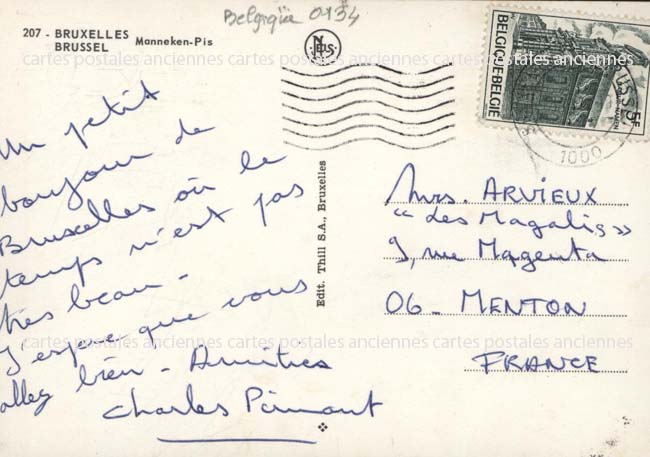 Belgique 0134
207 - BRUXELLES Manneken-Pis
BRUSSEL
NELS
BELGIQUE-BELGIE
5F
1000
cartes postales anciennes cartes postales anciennes cartes postales anciennes
Un petit
bonjour de
Bruxelles où le
temps n'est pas
très beau -
J'espère que vous
allez bien - Amitiés
Charles
Edit. Thill S.A., Bruxelles
Mrs. ARVIEUX
"des Magalis"
9, rue Magenta
06 - MENTON
FRANCE
cartes postales anciennes cartes postales anciennes cartes postales anciennes